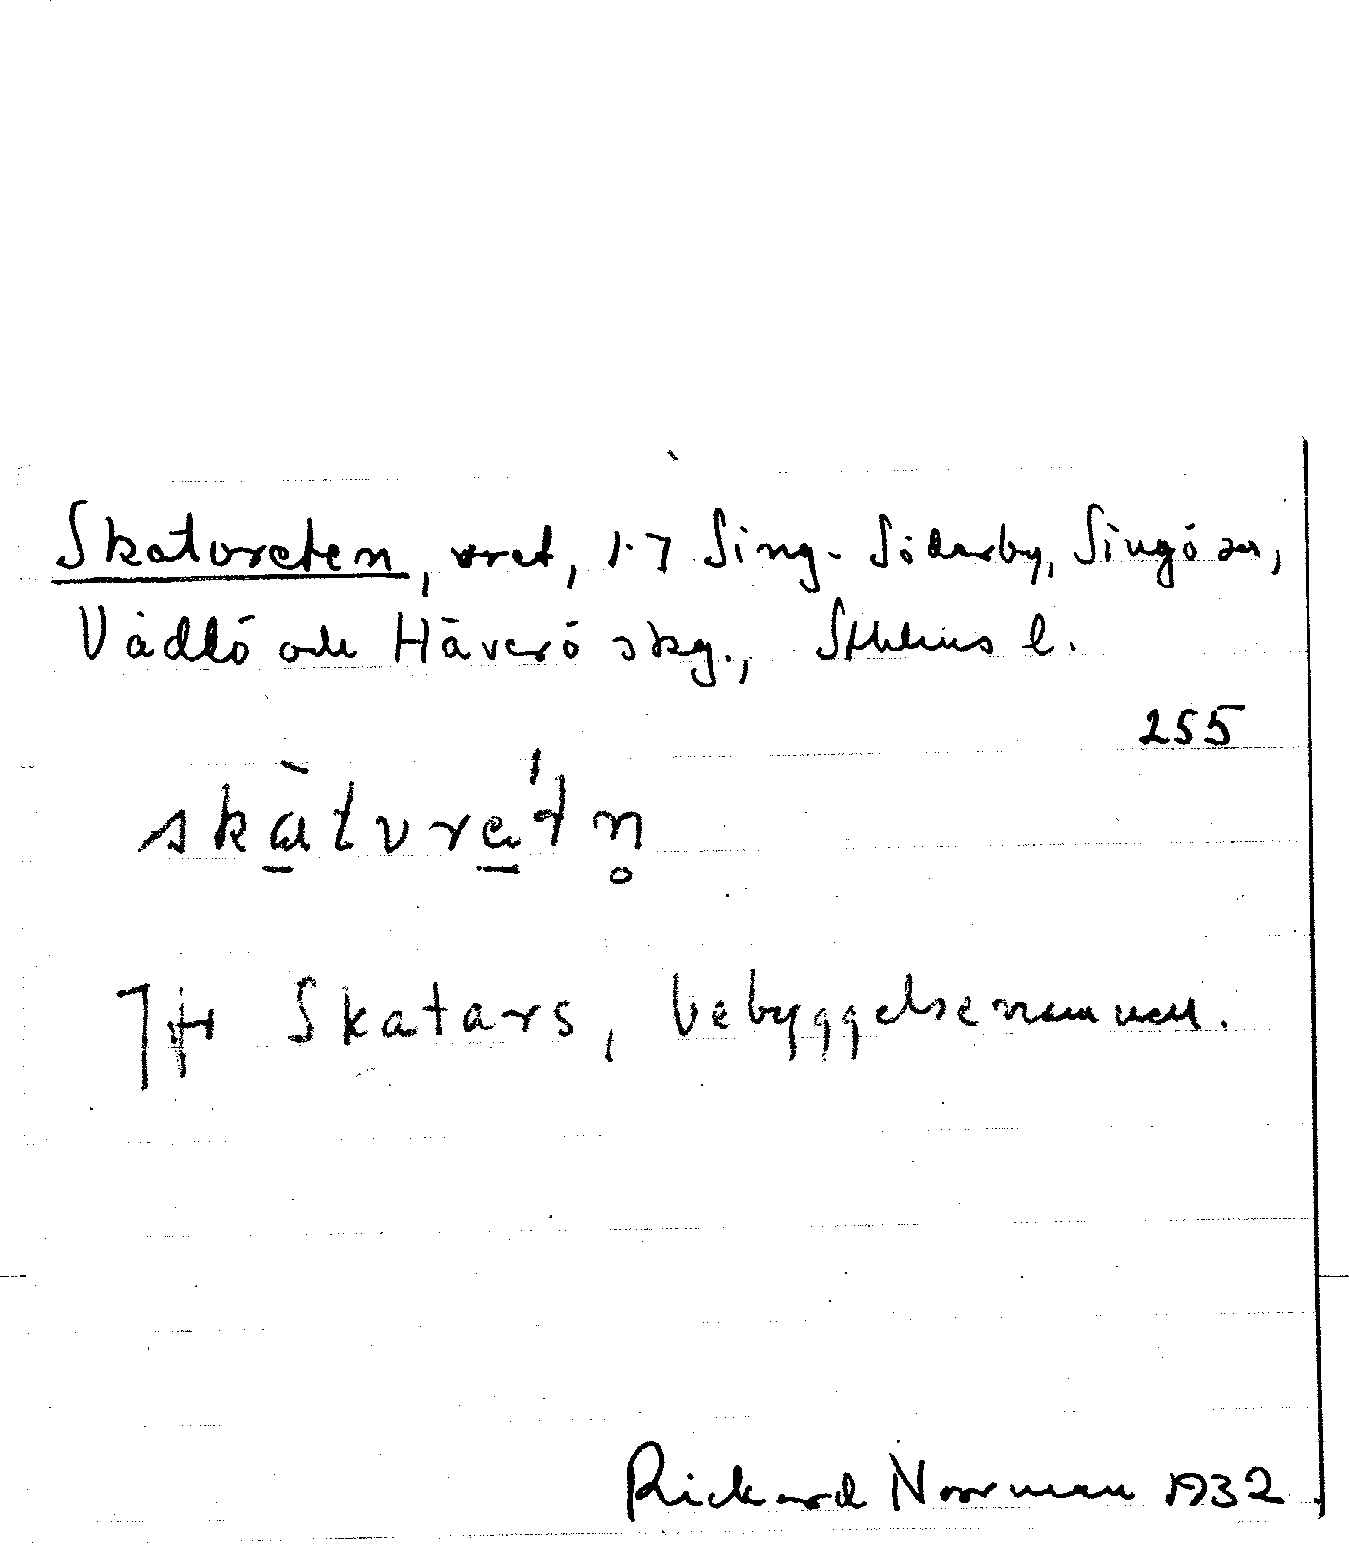 Skatvreten, vret, 1-7 Sing-Söderby, Singö sn,
Väddö och Häverö skg., Sthlms l.
255
skà̱tvre̱'tn̥
Jfr Skatars, bebyggelsenamnen.
Rickard Norrman 1932